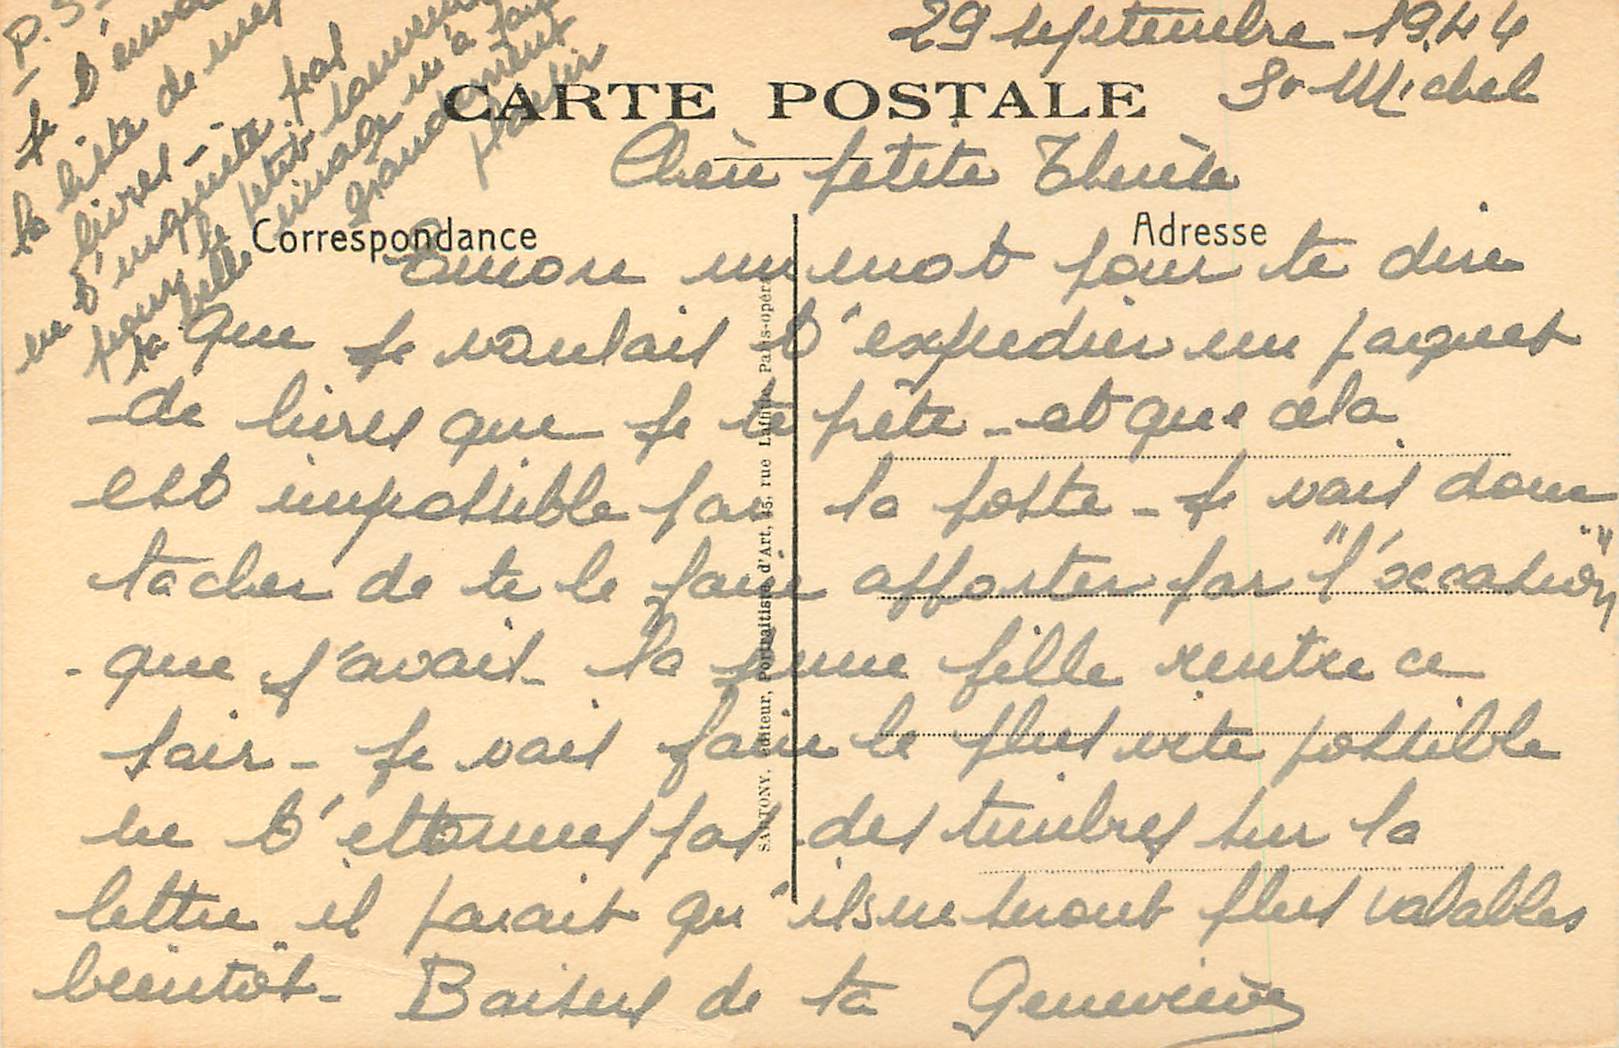 29 septembre 1944
St Michel
CARTE POSTALE
Chère petite Thérèse
Correspondance
Adresse
Encore un mot pour te dire
que je voulais t'expedier un paquet
de livres que je te prête - et que cela
est impossible par la poste - Je vais donc
tacher de te le faire apporter par "l'occasion"
que j'avais - la jeune fille rentre ce
soir - Je vais faire le plus vite possible
ne t'ettonnes pas des timbres sur la
lettre, il parait qu'ils ne seront plus valables
bientôt - Baisers de ta Geneviève
P.S -
Je t'envoie
la liste de mes
livres -
ne t'inquiète pas
pour le petit
ta belle image m'a fait
grandement
plaisir
SARTONY, Éditeur, Portraitiste d'Art, 45, rue Laffitte, Paris-opéra